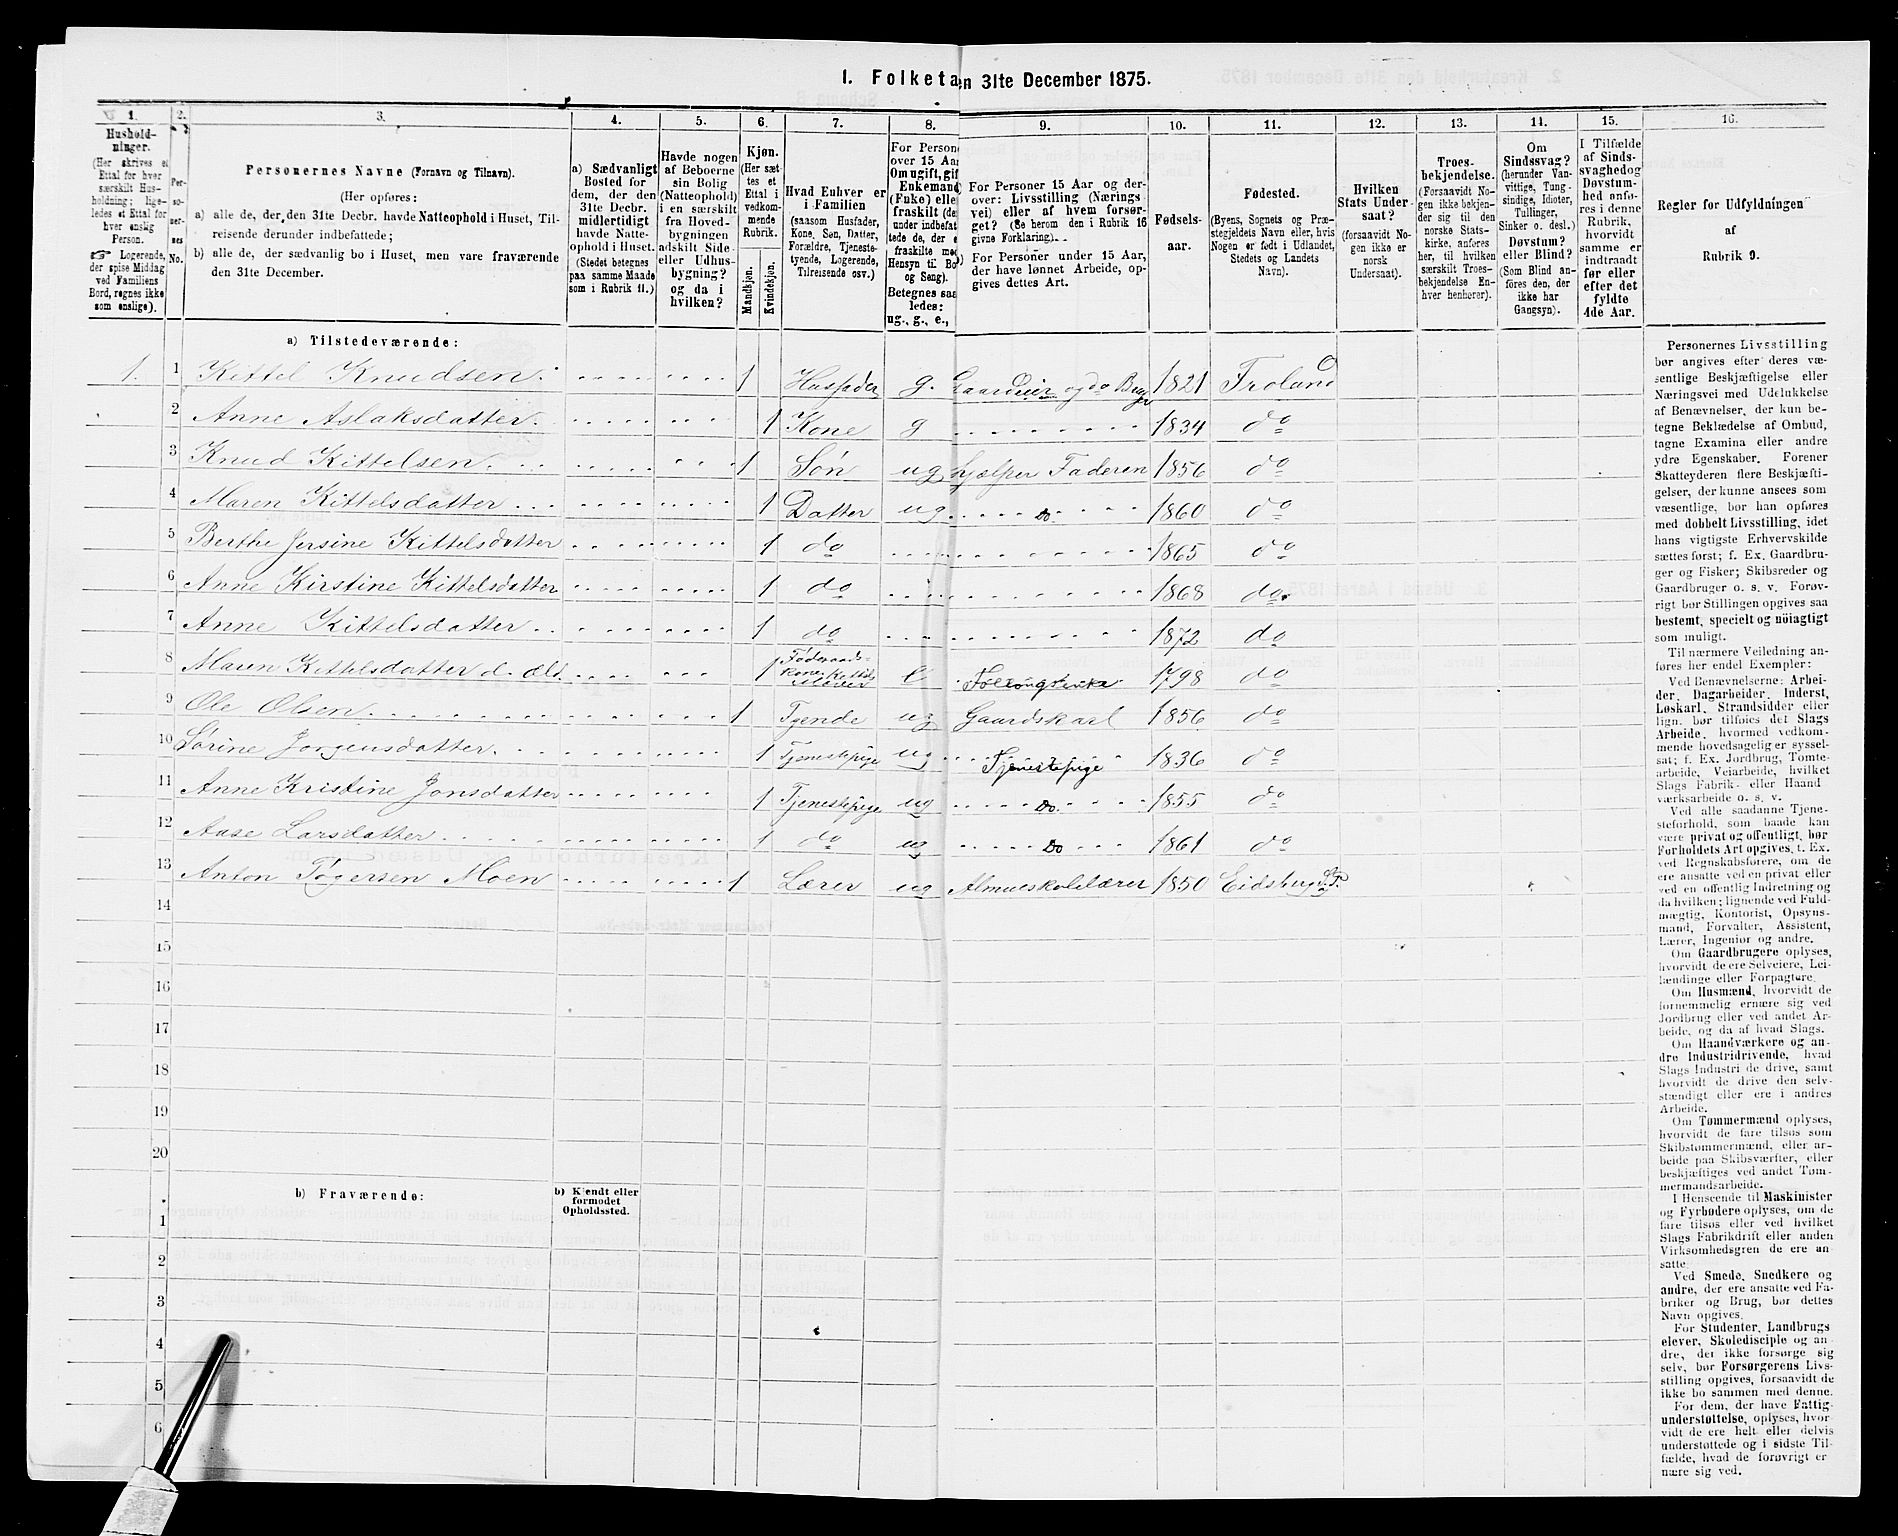 1. Folketa en 31te December 1875.
1. 2. 3. 4. 5. 6. 7. 8. 9. 10. 11. 12. 13. 14. 15. 16.
Hushold-
ninger.
(Her skrives et
Ettal for hver
særskilt Hus-
holdning; lige-
ledes et Ettal for
hver enslig
Person.
☞ Logerende,
der spise Middag
ved Familiens
Bord, regnes ikke
som enslige).
Per-
so-
ner-
nes
No.
Personernes Navne (Fornavn og Tilnavn).
(Her opføres:
a) alle de, der den 31te Decbr. havde Natteophold i Huset, Til-
reisende derunder indbefattede;
b) alle de, der sædvanlig bo i Huset, men vare fraværende
den 31te December.
a) Sædvanligt
Bosted for
dem, der den
31te Decbr.
midlertidigt
havde Natte-
ophold i Huset.
(Stedet betegnes
paa samme Maade
som i Rubrik 11.)
Havde nogen
af Beboerne
sin Bolig
(Natteophold)
i en særskilt
fra Hoved-
bygningen
adskilt Side-
eller Udhus-
bygning?
og da i
hvilken?
Kjøn.
(Her sæt-
tes et
Ettal i
vedkom-
mende
Rubrik.
Mandkjøn.
Kvindekjøn.
Hvad Enhver er
i Familien
(saasom Husfader,
Kone, Søn, Datter,
Forældre, Tjeneste-
tyende, Logerende,
Tilreisende osv.)
For Person
over 15 Aa
Om ugift, gif
Enkemand
(Enke) elle
fraskilt (de
under indbefat
tede de, der e
fraskilte med
Hensyn til Bo
og Seng).
Betegnes saa
ledes:
ug., g., e.,
For Personer 15 Aar og der-
over: Livsstilling (Nærings-
vei) eller af hvem forsør-
get? (Se herom den i Rubrik 16
givne Forklaring).
For Personer under 15 Aar,
der have lønnet Arbeide, op-
gives dettes Art.
Fødsels-
aar.
Fødested.
(Byens, Sognets og Præ-
stegjeldets Navn eller, hvis
Nogen er født i Udlandet,
Stedets og Landets
Navn).
Hvilken
Stats Under-
saat?
(forsaavidt No-
gen ikke er
norsk
Undersaat).
Troes-
bekjendelse.
(Forsaavidt No-
gen ikke bekjen-
der sig til den
norske Stats-
kirke, anføres
her, til hvilken
særskilt Troes-
bekjendelse En-
hver henhører).
Om
Sindssvag?
(herunder Van-
vittige, Tung-
sindige, Idioter,
Tullinger,
Sinker o. desl.)
Døvstum?
eller Blind?
(Som Blind an-
føres den, der
ikke har
Gangsyn).
I Tilfælde
af Sinds-
svaghedog
Døvstum-
hed anfø-
res i denne
Rubrik,
hvorvidt
samme er
indtraadt
før eller
efter det
fyldte
4de Aar.
Regler for Udfyldningen
af
Rubrik 9.
a) Tilstedeværende:
1. 1 Kittel Knudsen. 1 Husfader g. Gaardeier og do Bruger 1821 Froland
2 Anne Aslaksdatter. 1 Kone g 1834 do
3 Knud Kittelsen. 1 Søn ug hjælper Faderen 1856 do
4 Maren Kittelsdatter 1 Datter ug Do. 1860 do
5 Berthe Jersine Kittelsdatter 1 do 1865 do
6 Anne Kirstine Kittelsdatter 1 do 1868 do
7 Anne Kittelsdatter 1 do 1872 do
8 Maren Kittelsdatter d. æld. 1 Føderaads-
kone Kittels e 1798 do
9 Ole Olsen 1 Tyende ug Gaardskarl 1856 do
10 Sørine Jorgensdatter. 1 Tjenestepige ug Tjenestepige 1836 do
11 Anne Kristine Jonsdatter 1 Tjenestepige ug Do. 1855 do
12 Aase Larsdatter 1 do ug Do 1861 do
13 Anton Togersen Moen 1 Lærer ug Almueskolelærer 1850 Eidsberg
14
15
16
17
18
19
20
b) Fraværende:
b) Kjendt eller
formodet
Opholdssted.
1
2
3
4
5
6
Personernes Livsstilling
bør angives efter deres væ-
sentlige Beskjæftigelse eller
Næringsvei med Udelukkelse
af Benævnelser, der kun be-
tegne Beklædelse af Ombud,
tagne Examina eller andre
ydre Egenskaber. Forener
Skatteyderen flere Beskjæfti-
gelser, der kunne ansees som
væsentlige, bør han opføres
med dobbelt Livsstilling, idet
hans vigtigste Erhvervskilde
sættes først; f. Ex. Gaardbru-
ger og Fisker; Skibsreder og
Gaardbruger o. s. v. Forøv-
rigt bør Stillingen opgives saa
bestemt, specielt og nöiagtigt
som muligt.
Til nærmere Veiledning an-
føres her endel Exempler:
Ved Benævnelserne: Arbei-
der, Dagarbeider, Inderst,
Løskarl, Strandsidder eller
lign. bør tilføies det Slags
Arbeide, hvormed vedkom-
mende hovedsagelig er syssel-
sat; f. Ex. Jordbrug, Tomte-
arbeide, Veiarbeide, hvilket
Slags Fabrik- eller Haand
værksarbeide o. s. v.
Ved alle saadanne Tjene-
steforhold, som baade kan
være privat og offentligt, bør
Forholdets Art opgives, f. Ex.
ved Regnskabsførere, om de
ere ansatte ved en privat eller
ved en offentlig Indretning og
da hvilken; lignende ved Fuld-
mægtig, Kontorist, Opsyns-
mand, Forvalter, Assistent,
Lærer, Ingeniør og andre.
Om Gaardbrugere oplyses,
hvorvidt de ere Selveiere, Lei-
lændinge eller Forpagtere.
Om Husmænd, hvorvidt de
fornemmelig ernære sig ved
Jordbrug eller ved andet Ar-
beide, og da af hvad Slags.
Om Haandværkere og an-
dre Industridrivende, hvad
Slags Industri de drive, samt
hvorvidt de drive den selv-
stændigt eller ere i andres
Arbeide.
Om Tømmermænd oplyses,
hvorvidt de fare tilsøs som
Skibstømmermænd, eller ar-
beide paa Skibsværfter, eller
beskjæftiges ved andet Tøm-
mermandsarbeide.
I Henseende til Maskinister
og Fyrbødere oplyses, om de
fare tilsøs eller ved hvilket
Slags Fabrikdrift eller anden
Virksomhedsgren de ere an-
satte.
Ved Smede, Snedkere og
andre, der ere ansatte ved Fa-
briker og Brug, bør dettes
Navn opgives.
For Studenter, Landbrugs
elever, Skoledisciple og an-
dre, der ikke forsørge sig
selv, bør Forsørgerens Livs-
stilling opgives, forsaavidt de
ikke bo sammen med denne.
For dem, der have Fattig-
understøttelse, oplyses, hvor-
vidt de ere helt eller delvis
understøttede og i sidste Til-
fælde, hvad de forøvrigt er-
nære sig ved.